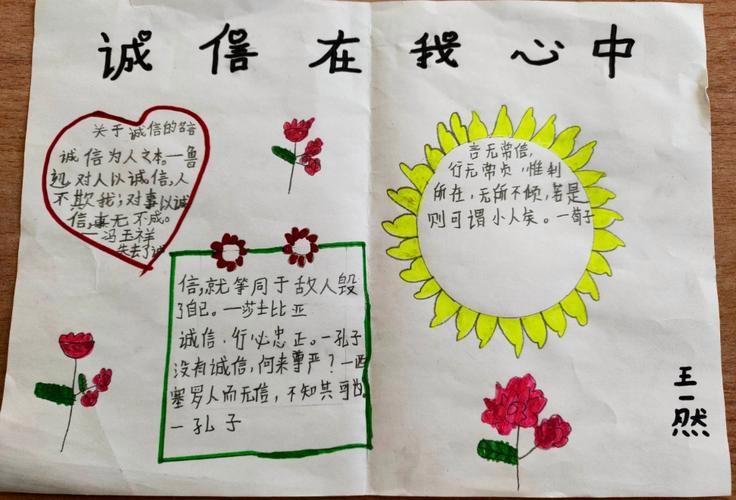 诚信在我心中
关于诚信的名言
诚信为人之本。—鲁
迅 对人以诚信,人
不欺我;对事以诚
信,事无不成。
—冯玉祥
失去了诚
信,就等同于敌人毁
了自己。—莎士比亚
诚信.行必忠正。—孔子
没有诚信,何来尊严?—西
塞罗人而无信,不知其可也。
—孔子
言无常信,
行无常贞,惟利
所在,无所不倾,若是
则可谓小人矣。—荀子
王一然